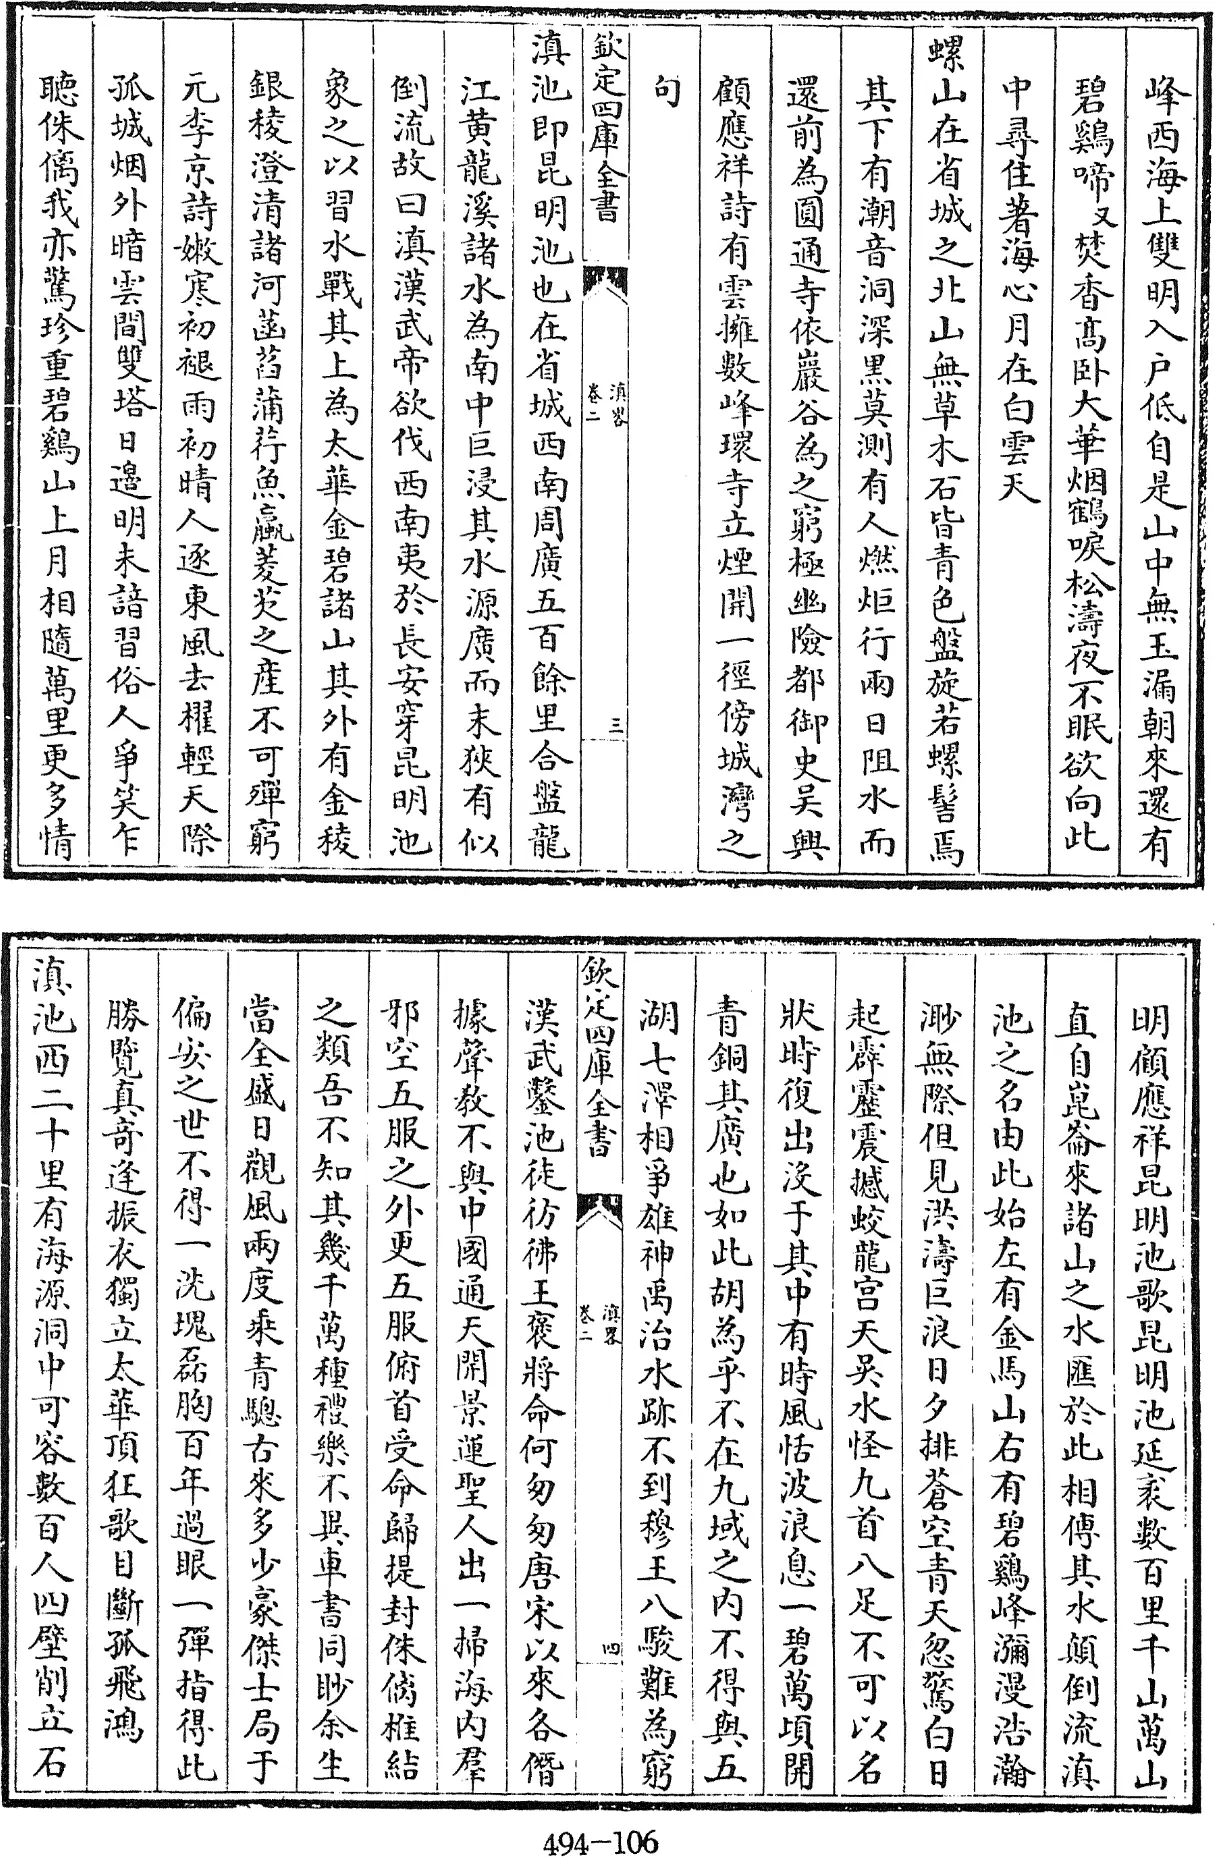 峰西海上雙明入户低自是山中無玉漏朝來還有
碧鷄啼又焚香髙卧大華烟鶴唳松濤夜不眠欲向此
中尋住著海心月在白雲天
螺山在省城之北山無草木石皆青色盤旋若螺髻焉
其下有潮音洞深黒莫測有人燃炬行兩日阻水而
還前為圓通寺依巖谷為之窮極幽險都御史吴興
顧應祥詩有雲擁數峰環寺立煙開一徑傍城灣之
句
欽定四庫全書
滇畧
卷二
三
滇池即昆明池也在省城西南周廣五百餘里合盤龍
江黄龍溪諸水為南中巨浸其水源廣而末狹有似
倒流故曰滇漢武帝欲伐西南夷於長安穿昆明池
象之以習水戰其上為太華金碧諸山其外有金稜
銀稜澄清諸河菡萏蒲荇魚蠃菱芡之產不可殫窮
元李京詩嫩寒初褪雨初晴人逐東風去櫂輕天際
孤城烟外暗雲間雙塔日邊明未諳習俗人爭笑乍
聽侏㒧我亦驚珍重碧鷄山上月相隨萬里更多情
明顧應祥昆明池歌昆明池延袤數百里千山萬山
直自崑崙來諸山之水匯於此相傳其水顛倒流滇
池之名由此始左有金馬山右有碧鷄峰瀰漫浩瀚
渺無際但見洪濤巨浪日夕排蒼空青天忽驚白日
起霹靂震撼蛟龍宫天吴水怪九首八足不可以名
狀時復出沒于其中有時風恬波浪息一碧萬頃開
青銅其廣也如此胡為乎不在九域之内不得與五
湖七澤相爭雄神禹治水跡不到穆王八駿難為窮
欽定四庫全書
滇畧
卷二
四
漢武鑿池徒彷彿王褒將命何匆匆唐宋以來各僭
據聲教不與中國通天開景運聖人出一掃海内羣
邪空五服之外更五服俯首受命歸提封侏㒧椎結
之類吾不知其幾千萬種禮樂不異車書同眇余生
當全盛日觀風兩度乘青驄古來多少豪傑士局于
偏安之世不得一洗塊磊胸百年過眼一彈指得此
勝覽真奇逢振衣獨立太華頂狂歌目斷孤飛鴻
滇池西二十里有海源洞中可容數百人四壁削立石
494-106